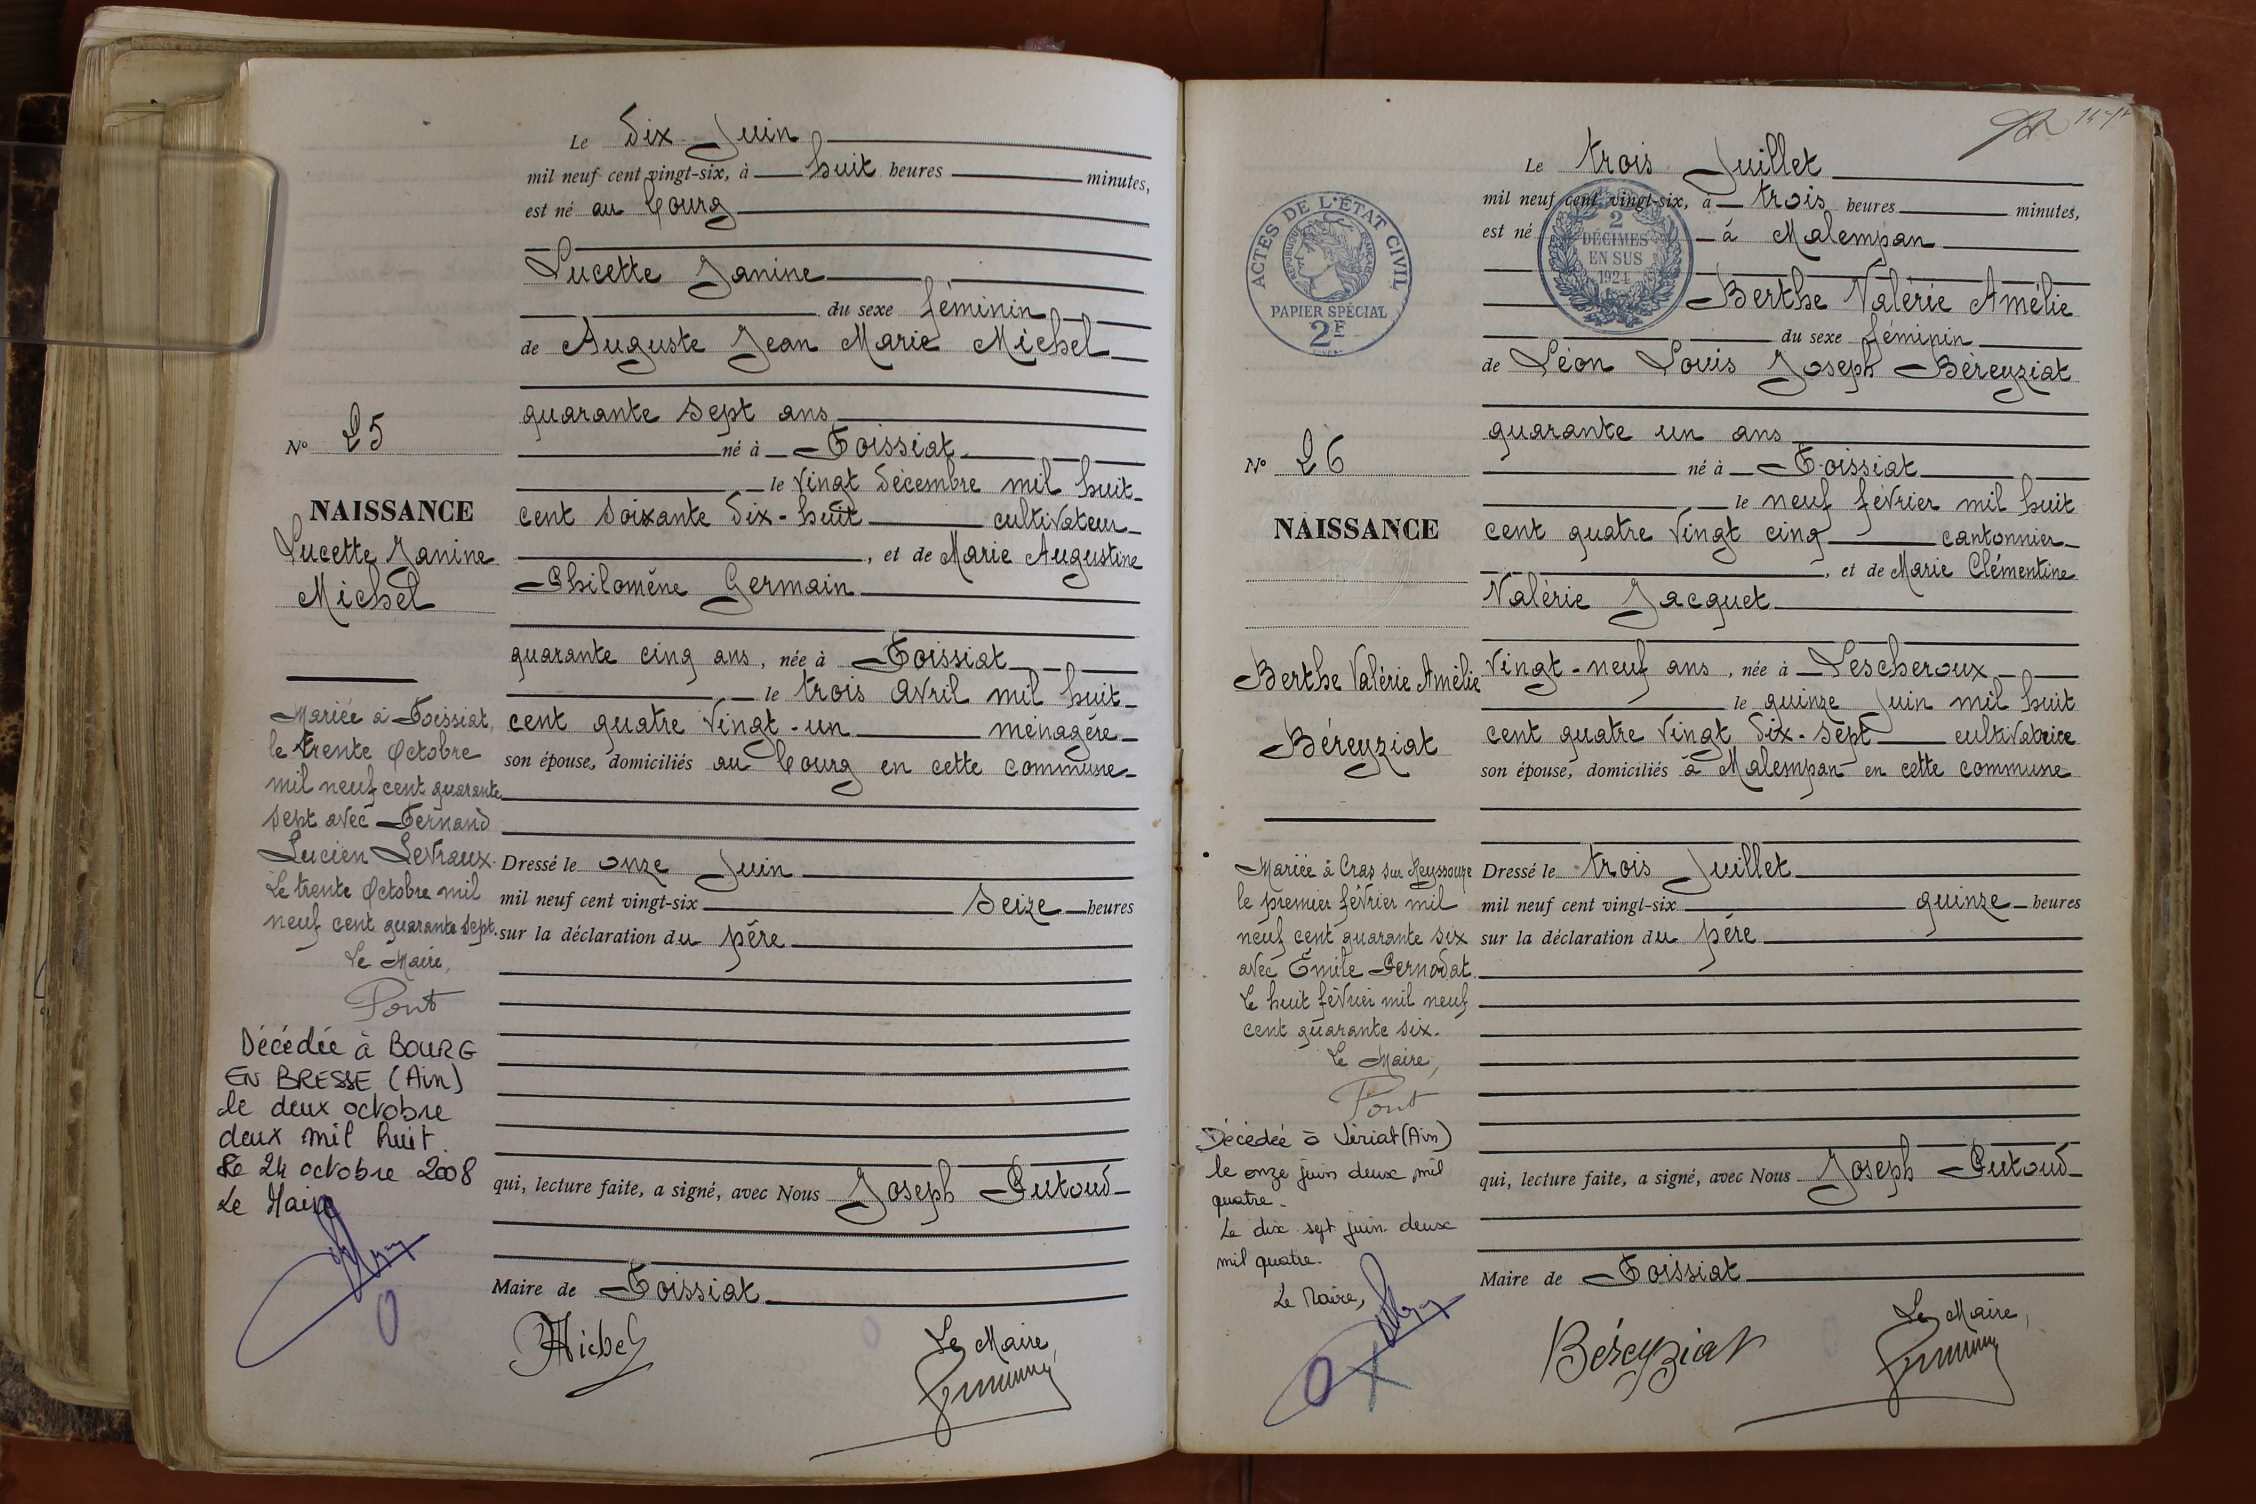 Le dix Juin
mil neuf cent vingt-six, à huit heures minutes,
est né au bourg
Lucette Janine
du sexe féminin
de Auguste Jean Marie Michel
quarante sept ans
né à Foissiat
le vingt décembre mil huit
cent soixante dix-huit cultivateur
, et de Marie Augustine
Philomène Germain
quarante cinq ans, née à Foissiat
le trois avril mil huit
cent quatre vingt-un ménagère
son épouse, domiciliés au bourg en cette commune
Dressé le onze Juin
mil neuf cent vingt-six seize heures
sur la déclaration du père
qui, lecture faite, a signé, avec Nous Joseph Putoud
Maire de Foissiat
Michel
Le Maire,
No 25
NAISSANCE
Lucette Janine
Michel
Mariée à Foissiat,
le trente Octobre
mil neuf cent quarante
sept avec Fernand
Lucien Levraux.
Le trente Octobre mil
neuf cent quarante sept.
Le Maire,
Pont
Décédée à BOURG
EN BRESSE (Ain)
le deux octobre
deux mil huit
Le 24 octobre 2008
Le Maire
Le trois Juillet
mil neuf cent vingt-six, à trois heures minutes,
est né à Malempan
Berthe Valérie Amélie
du sexe féminin
de Léon Louis Joseph Béreyziat
quarante un ans
né à Foissiat
le neuf février mil huit
cent quatre vingt cinq cantonnier
, et de Marie Clémentine
Valérie Jacquet
vingt-neuf ans, née à Lescheroux
le quinze Juin mil huit
cent quatre vingt dix-sept cultivatrice
son épouse, domiciliés à Malempan en cette commune
Dressé le trois Juillet
mil neuf cent vingt-six quinze heures
sur la déclaration du père
qui, lecture faite, a signé, avec Nous Joseph Putoud
Maire de Foissiat
Béreyziat
Le Maire,
ACTES DE L'ÉTAT CIVIL
RÉPUBLIQUE FRANÇAISE
PAPIER SPÉCIAL
2F
2
DÉCIMES
EN SUS
1924
No 26
NAISSANCE
Berthe Valérie Amélie
Béreyziat
Mariée à Cras sur Reyssouze
le premier février mil
neuf cent quarante six
avec Émile Pernodat.
Le huit février mil neuf
cent quarante six.
Le Maire,
Pont
Décédée à Viriat (Ain)
le onze juin deux mil
quatre.
Le dix sept juin deux
mil quatre.
Le Maire,